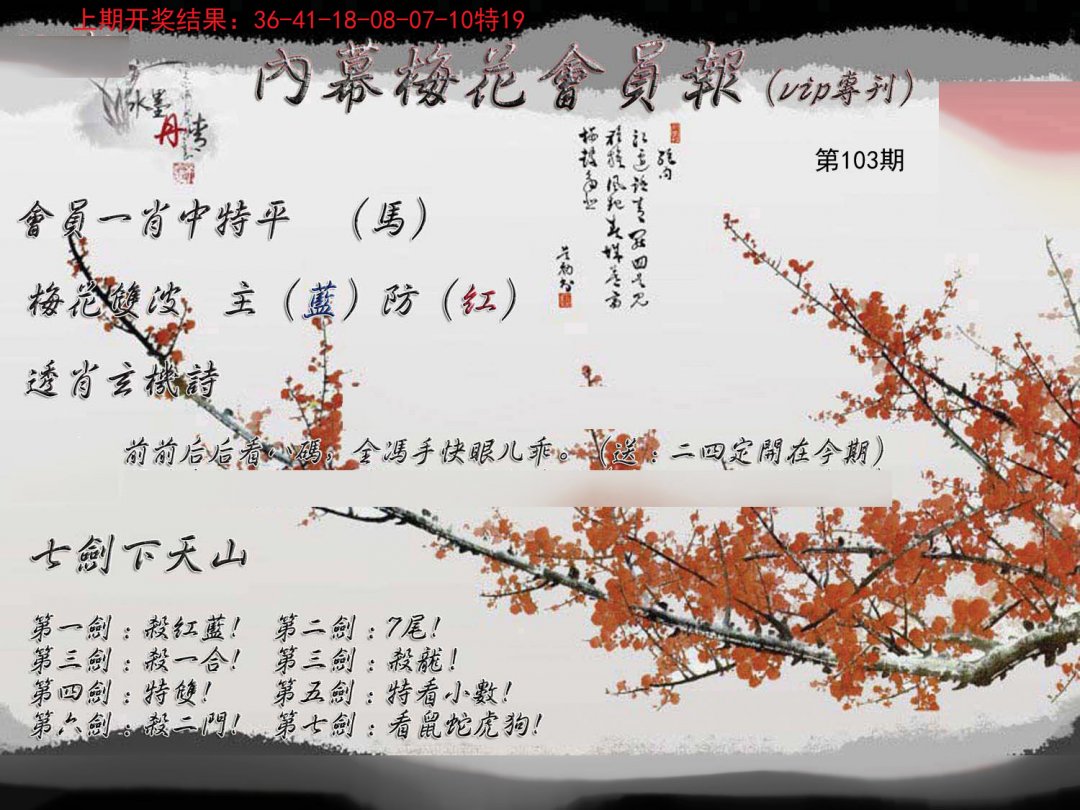 上期开奖结果：36-41-18-08-07-10特19
內幕梅花會員報（vip專刊）
水墨
丹青
第103期
會員一肖中特平 （馬）
梅花雙波 主（藍）防（紅）
透肖玄機詩
前前后后看八碼，全馮手快眼儿乖。（送：二四定開在今期）
七劍下天山
第一劍：殺紅藍！ 第二劍：7尾！
第三劍：殺一合！ 第三劍：殺龍！
第四劍：特雙！ 第五劍：特看小數！
第六劍：殺二門！ 第七劍：看鼠蛇虎狗！